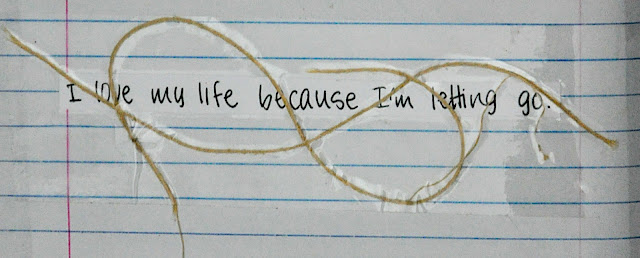 I love my life because I'm letting go.